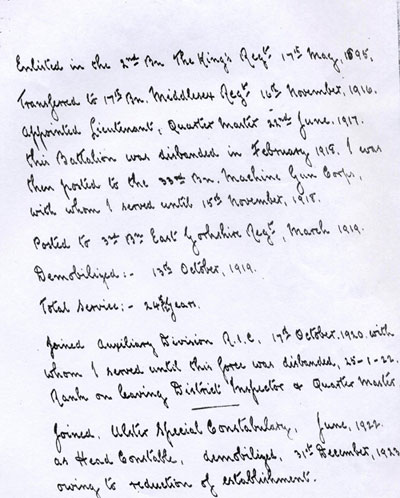 Enlisted in the 2nd Bn The King's Regt. 17th May, 1895.
Transferred to 17th Bn. Middlesex Regt 16th November, 1916.
Appointed Lieutenant, Quarter Master 22nd June. 1917.
this Battalion was disbanded in February 1918. I was
then posted to the 33rd Bn. Machine Gun Corps,
with whom I served until 15th November, 1918.
Posted to 3rd Bn East Yorkshire Regt, March 1919.
Demobilized:- 13th October, 1919.
Total Service:- 24 years.
Joined Auxiliary Division R.I.C, 17th October. 1920. with
whom I served until this force was disbanded, 25-1-22.
Rank on leaving District Inspector & Quarter Master
Joined. Ulster Special Constabulary, June, 1922
as Head Constable, demobilized, 31st December, 1923
owing to reduction of establishment.